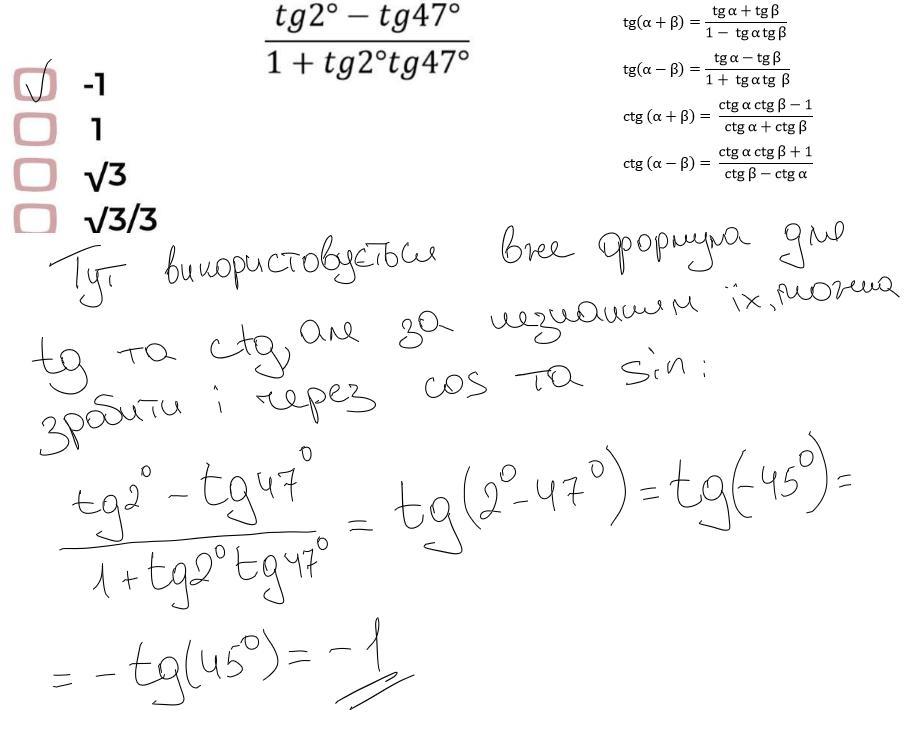 tg2° − tg47°
1 + tg2°tg47°
-1
1
√3
√3/3
tg(α + β) = tg α + tg β / 1 − tg α tg β
tg(α − β) = tg α − tg β / 1 + tg α tg β
ctg (α + β) = ctg α ctg β − 1 / ctg α + ctg β
ctg (α − β) = ctg α ctg β + 1 / ctg β − ctg α
Тут використовується вже формула для
tg та ctg, але за незнанням їх, можна
зробити і через cos та sin:
tg2° − tg47° / 1 + tg2° tg47° = tg(2° − 47°) = tg(−45°) =
= − tg(45°) = − 1